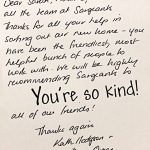 Dear Sarah,
all the team at Sargeants
Thanks for all your help in
sorting out our new home - you
have been the friendliest, most
helpful bunch of people to
work with. We will be highly
recommending Sargeants to
You're so kind!
all of our friends!
Thanks again
Kath